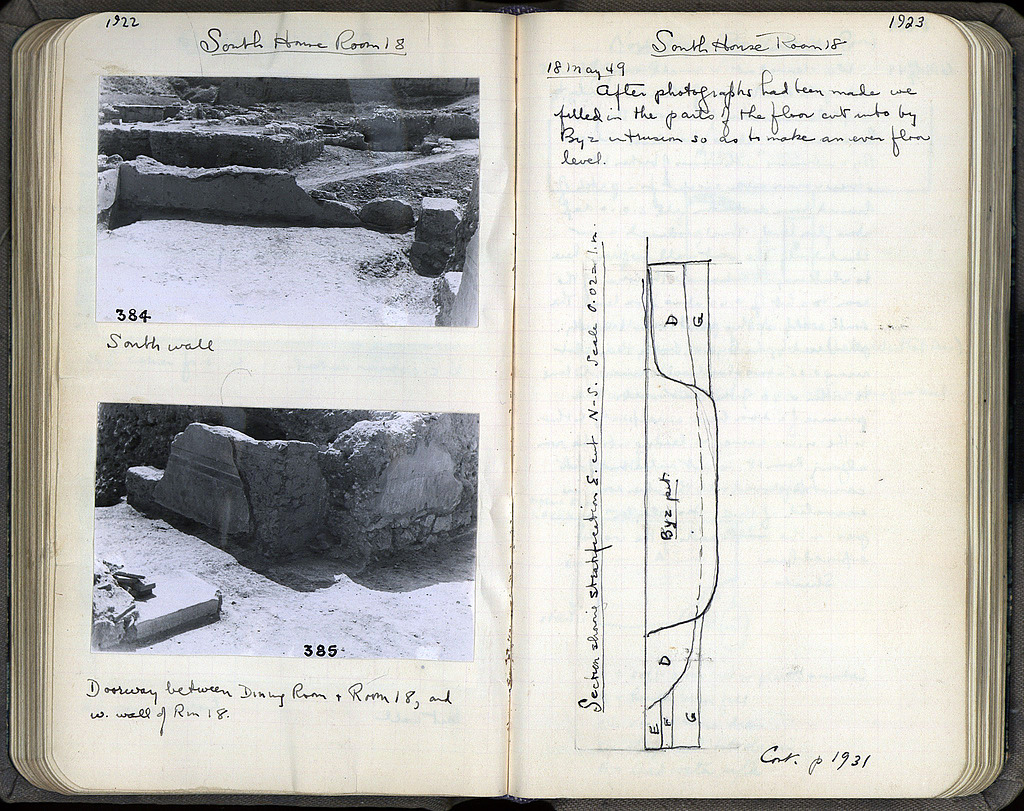 1922
South House Room 18
384
South wall
385
Doorway between Dining Room + Room 18, and
w. wall of Rm 18.
1923
South House Room 18
18 May 49
After photographs had been made we
filled in the parts of the floor cut into by
Byz intrusion so as to make an even floor
level.
Section showing stratification E. cut N-S. Scale 0.02 = 1.m.
D
G
Byz pit.
D
E
F
G
Cont. p 1931